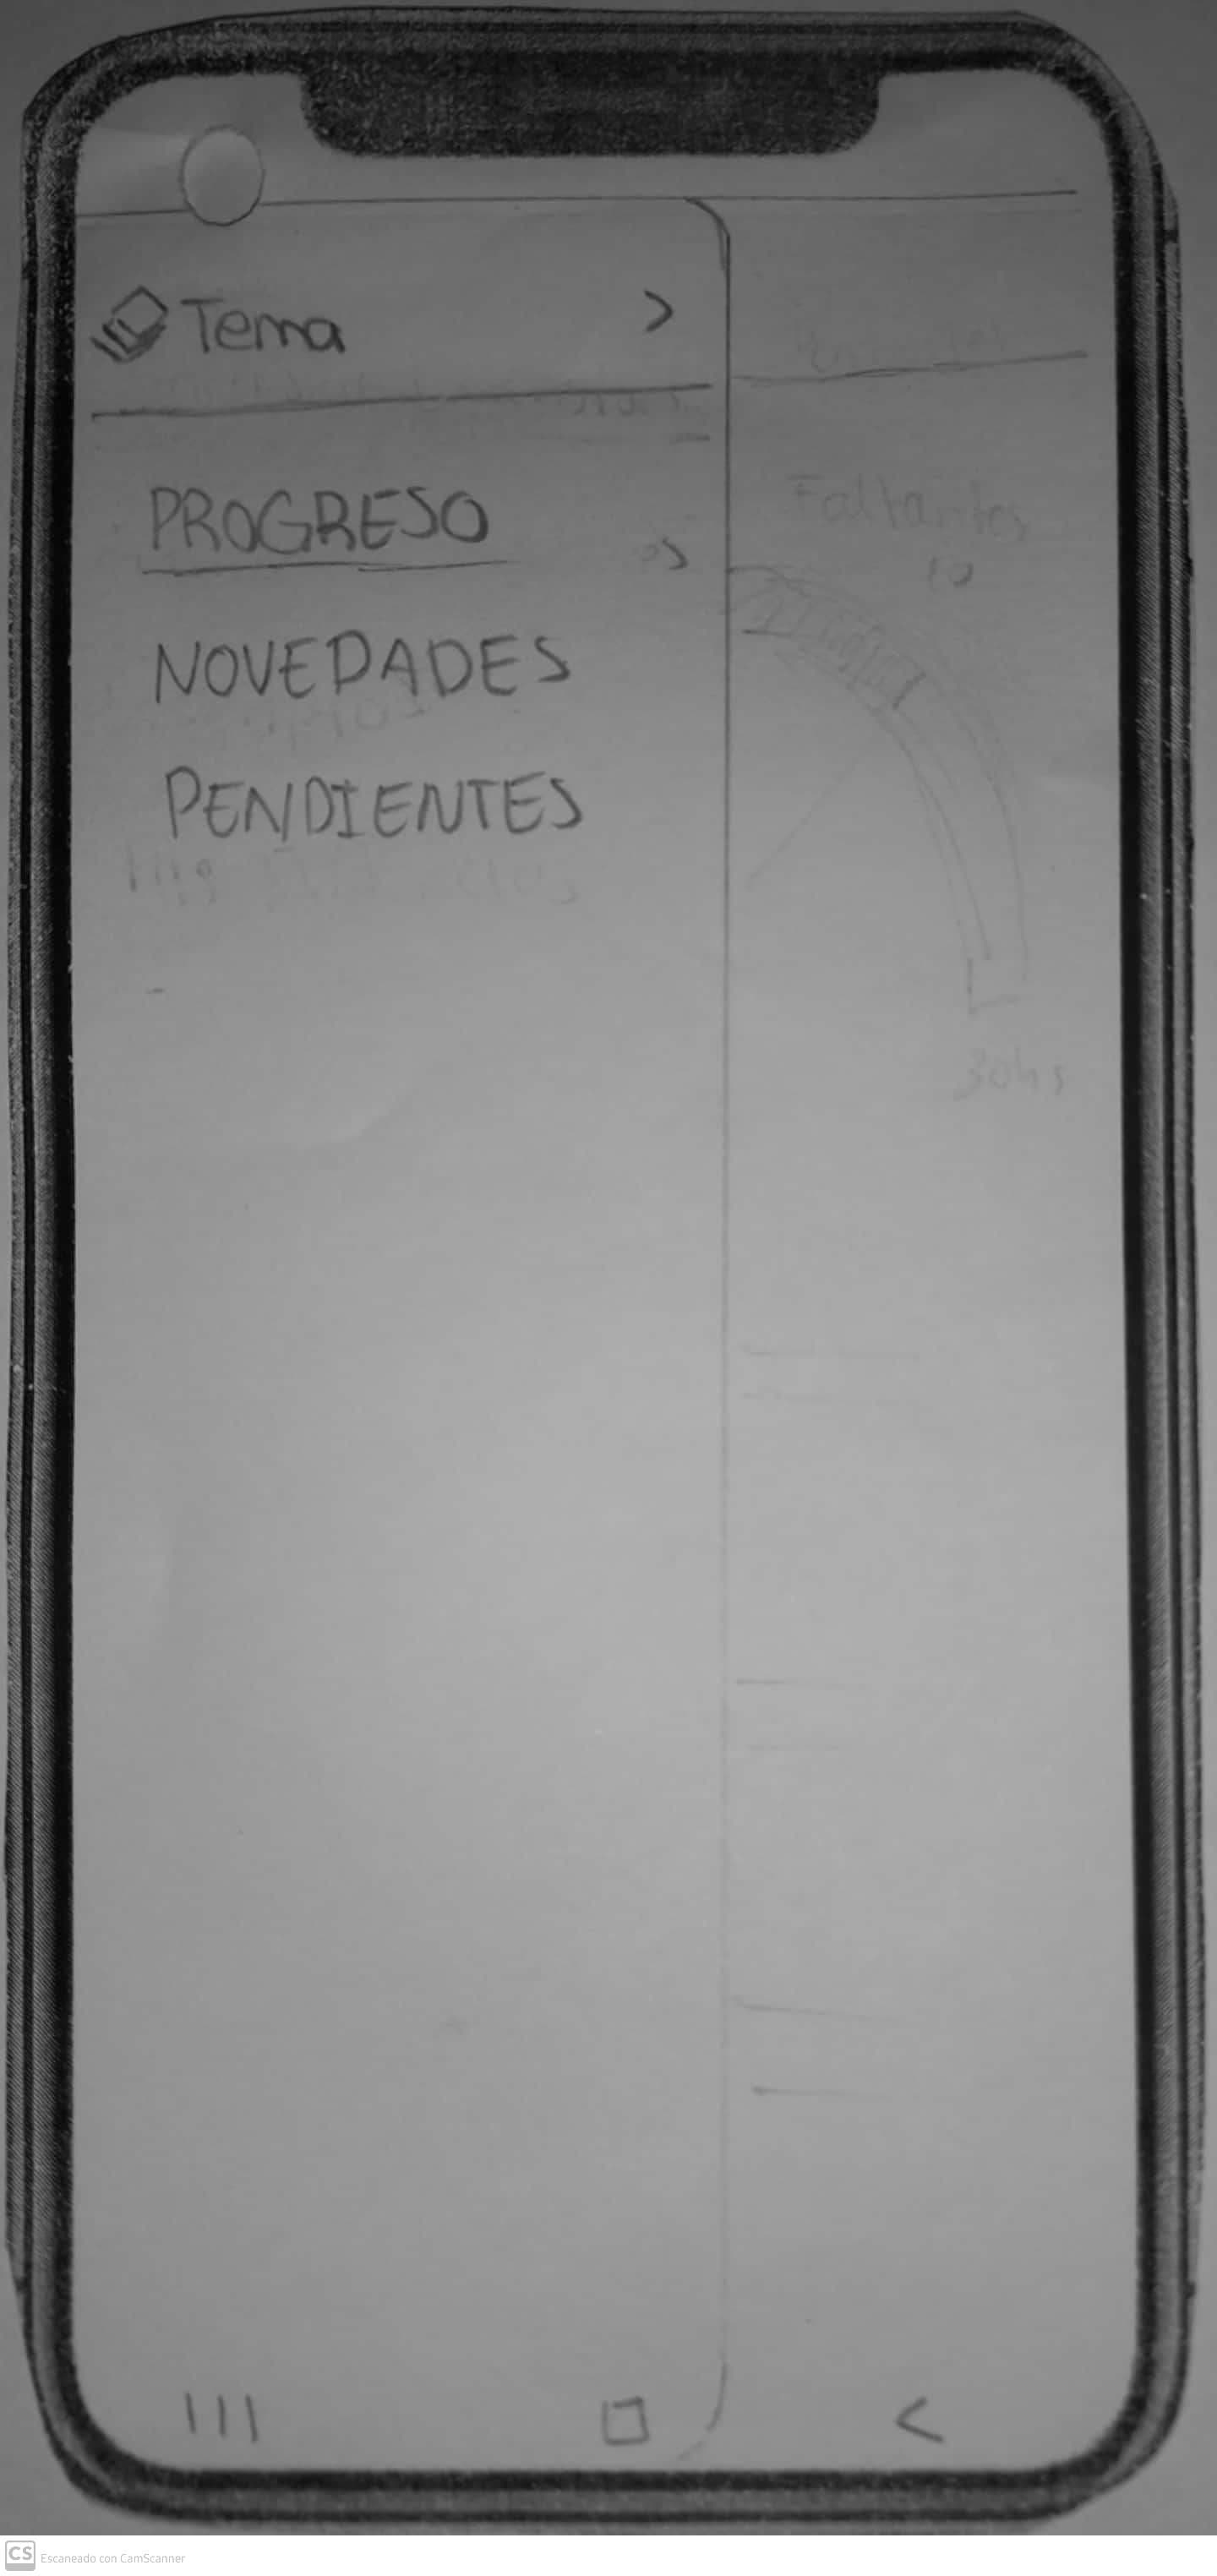 Tema >
PROGRESO
NOVEDADES
PENDIENTES
Faltantes
10
30hs
CS Escaneado con CamScanner